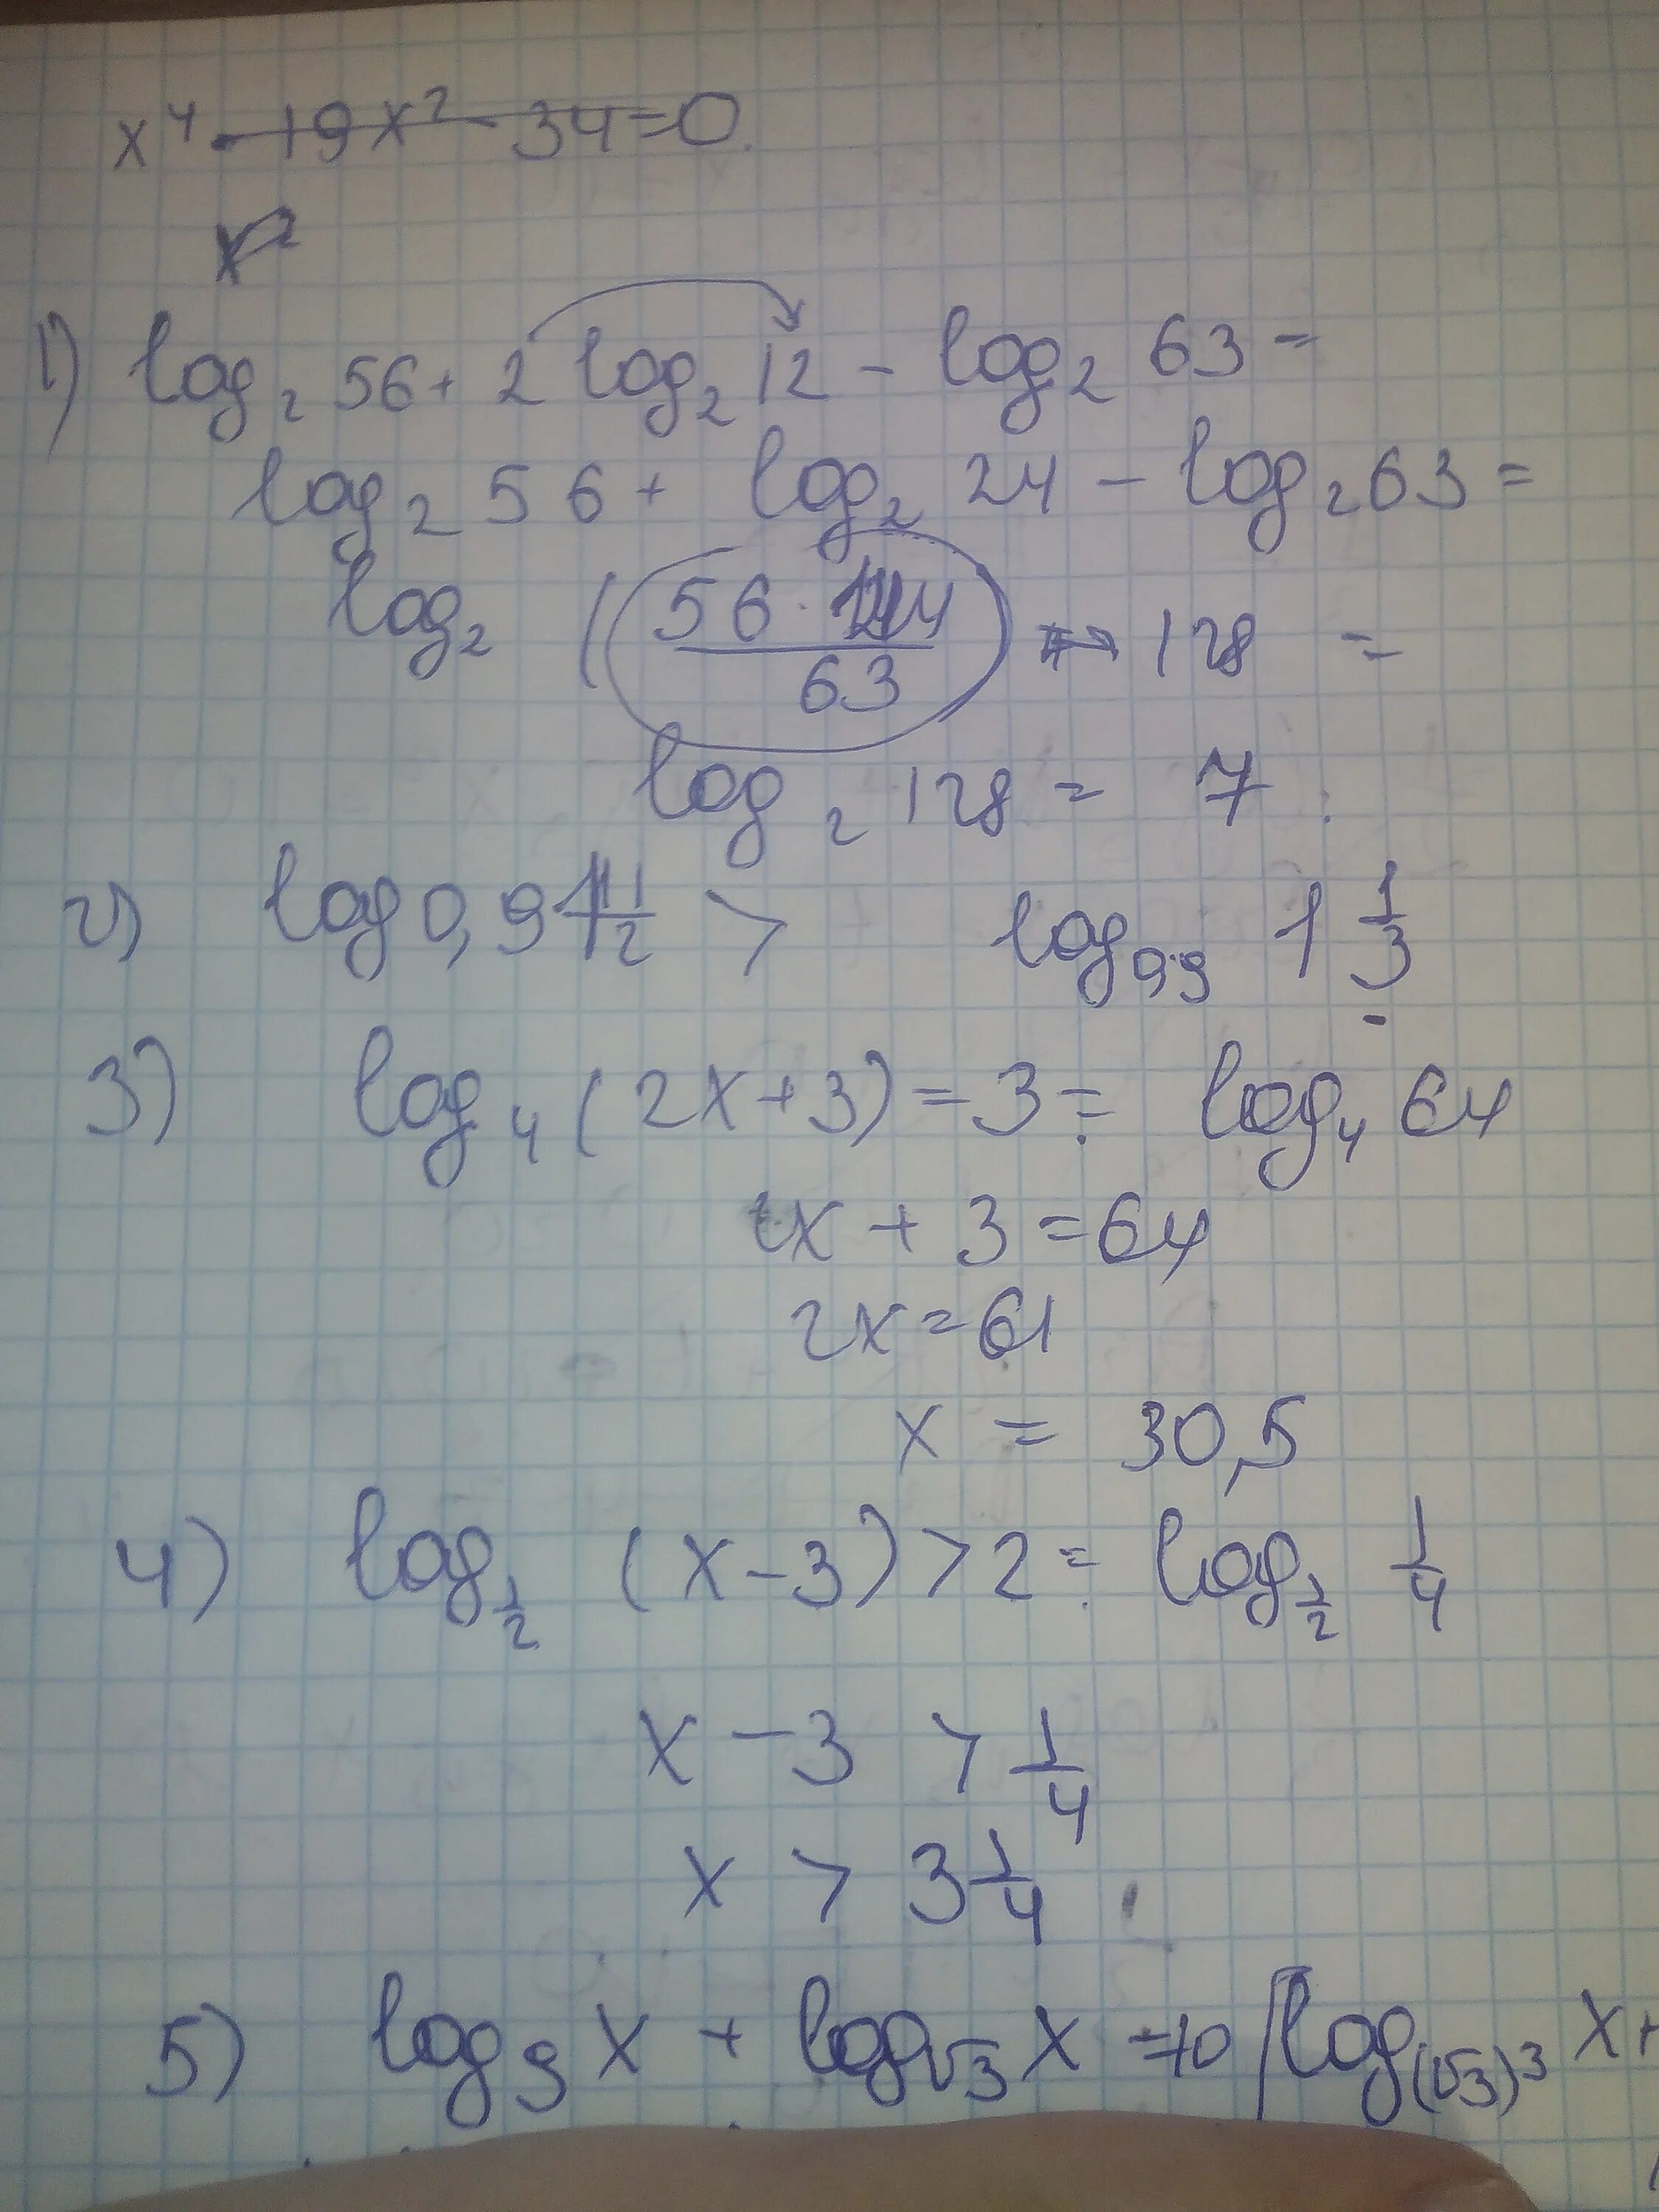 x⁴ - 19x² - 34 = 0.
x²
1) log₂ 56 + 2 log₂ 12 - log₂ 63 =
log₂ 56 + log₂ 24 - log₂ 63 =
log₂ (56 · 144 / 63) → 128 =
log₂ 128 = 7.
2) log 0,9 1 1/2 > log₀,₉ 1 1/3
3) log₄ (2x + 3) = 3 = log₄ 64
2x + 3 = 64
2x = 61
x = 30,5
4) log_1/2 (x - 3) > 2 = log_1/2 1/4
x - 3 > 1/4
x > 3 1/4
5) log₉ x + log_√3 x = 10 / log_(√3)³ x +